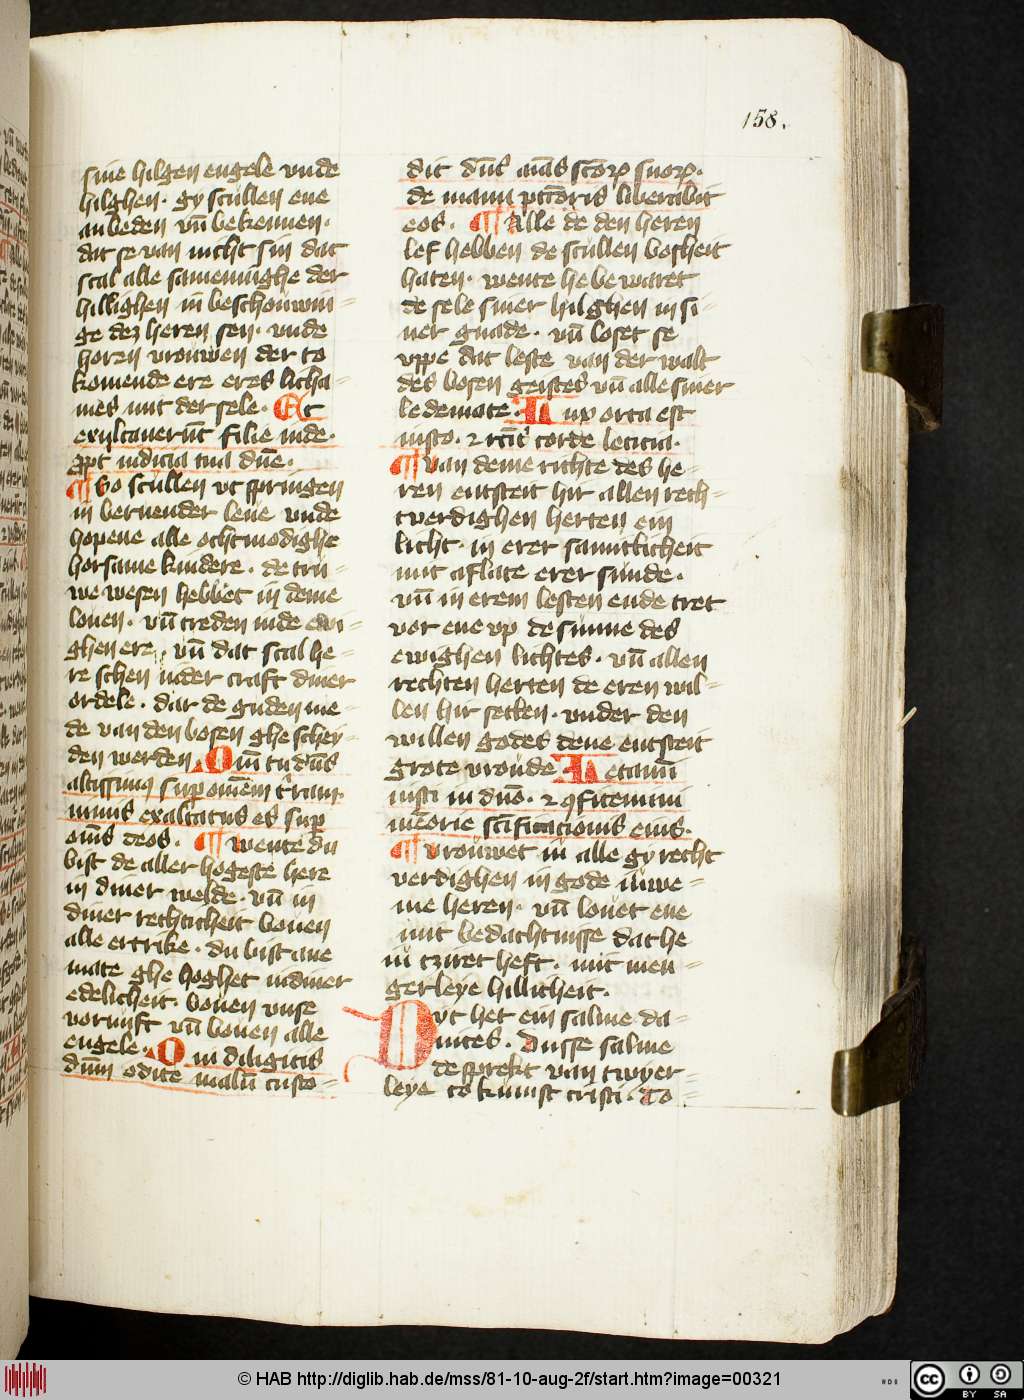 158.
sine hilgen engele vnde
hilghen. gy scullen ene
anbeden vn̄ bekennen.
dat se van nicht sin dat
scal alle sameninghe der
hillighen in beschouwin=
ge dez heren sen. vnde
horen vrouwen der to
komende ere eres licha=
mes mit der sele. Et
exultauerūt filie iude.
ꝓpt iudicia tua dn̄e.
¶ So scullen vt springen
in bernender leue vnde
hopene alle othmodighe
horsame kindere. de tru=
we wesen hebbet in deme
louen. vn̄ treden in de ewi=
ghen ere. vn̄ dat scal he=
re schen in der craft diner
ordele. dar de guden me=
de van den bosen ghe schey=
den werden. Qm̄ tu dn̄s
altissimus sup om̄em t̄ram.
nimis exaltatus es sup
om̄s deos. ¶ wente du
bist de aller hogeste here
in diner welde. vn̄ in
diner rechticheit bouen
alle ertrike. du bist ane
mate ghe hoghet in diner
edelicheit. bouen vnse
vornuft vn̄ bouen alle
engele. Qui diligitis
dn̄m odite malū custo=
dit dn̄s aīas sctoꝝ suoꝝ.
de manu pctōris liberabit
eos. ¶ Alle de den heren
lef hebben de scullen bosheit
haten. wente he be waret
de sele siner hilghen in si=
ner gnade. vn̄ loset se
vppe dat leste van der walt
des bosen geistes vn̄ alle siner
ledemate. Lux orta est
iusto. ⁊ rect̄ corde leticia.
¶ van deme richte des he=
ren entsteit hir allen rech=
tverdighen herten ein
licht. in erer samitlicheit
mit aflate erer sunde.
vn̄ in erem lesten ende tret
vor ene vp de sunne des
ewighen lichtes. vn̄ allen
rechten herten de eren wil=
len hir setten. vnder den
willen godes deme entsteit
grote vroude Letami̅
iusti in dn̄o. ⁊ ꝯfitemini
mēorie scīficationis eius.
¶ vrouwet iu alle gy recht
verdighen in gode iuwe=
me heren. vn̄ louet ene
mit bedachtnisse dat he
iu tziret heft. mit men=
gerleye hillicheit.
Dyt het ein salme da=
uites. Dusse salme
de sprekt van twyer=
leye to kumst cristi. To=
© HAB http://diglib.hab.de/mss/81-10-aug-2f/start.htm?image=00321
cc
BY SA